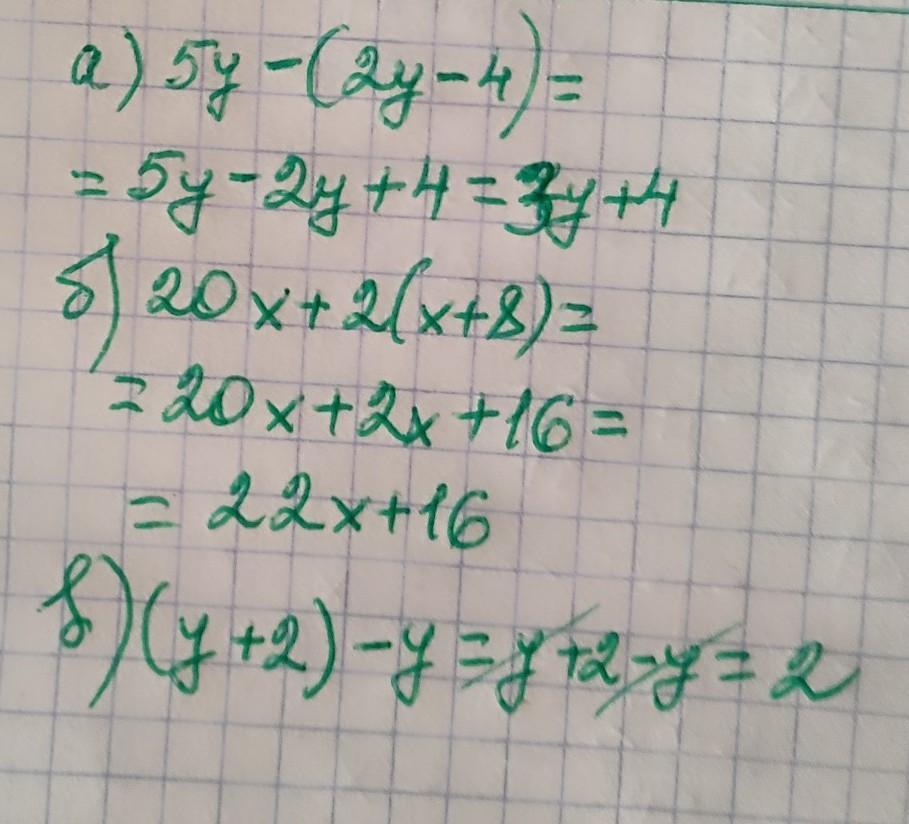 а) 5y - (2y - 4) =
= 5y - 2y + 4 = 3y + 4
б) 20x + 2(x + 8) =
= 20x + 2x + 16 =
= 22x + 16
в) (y + 2) - y = y + 2 - y = 2